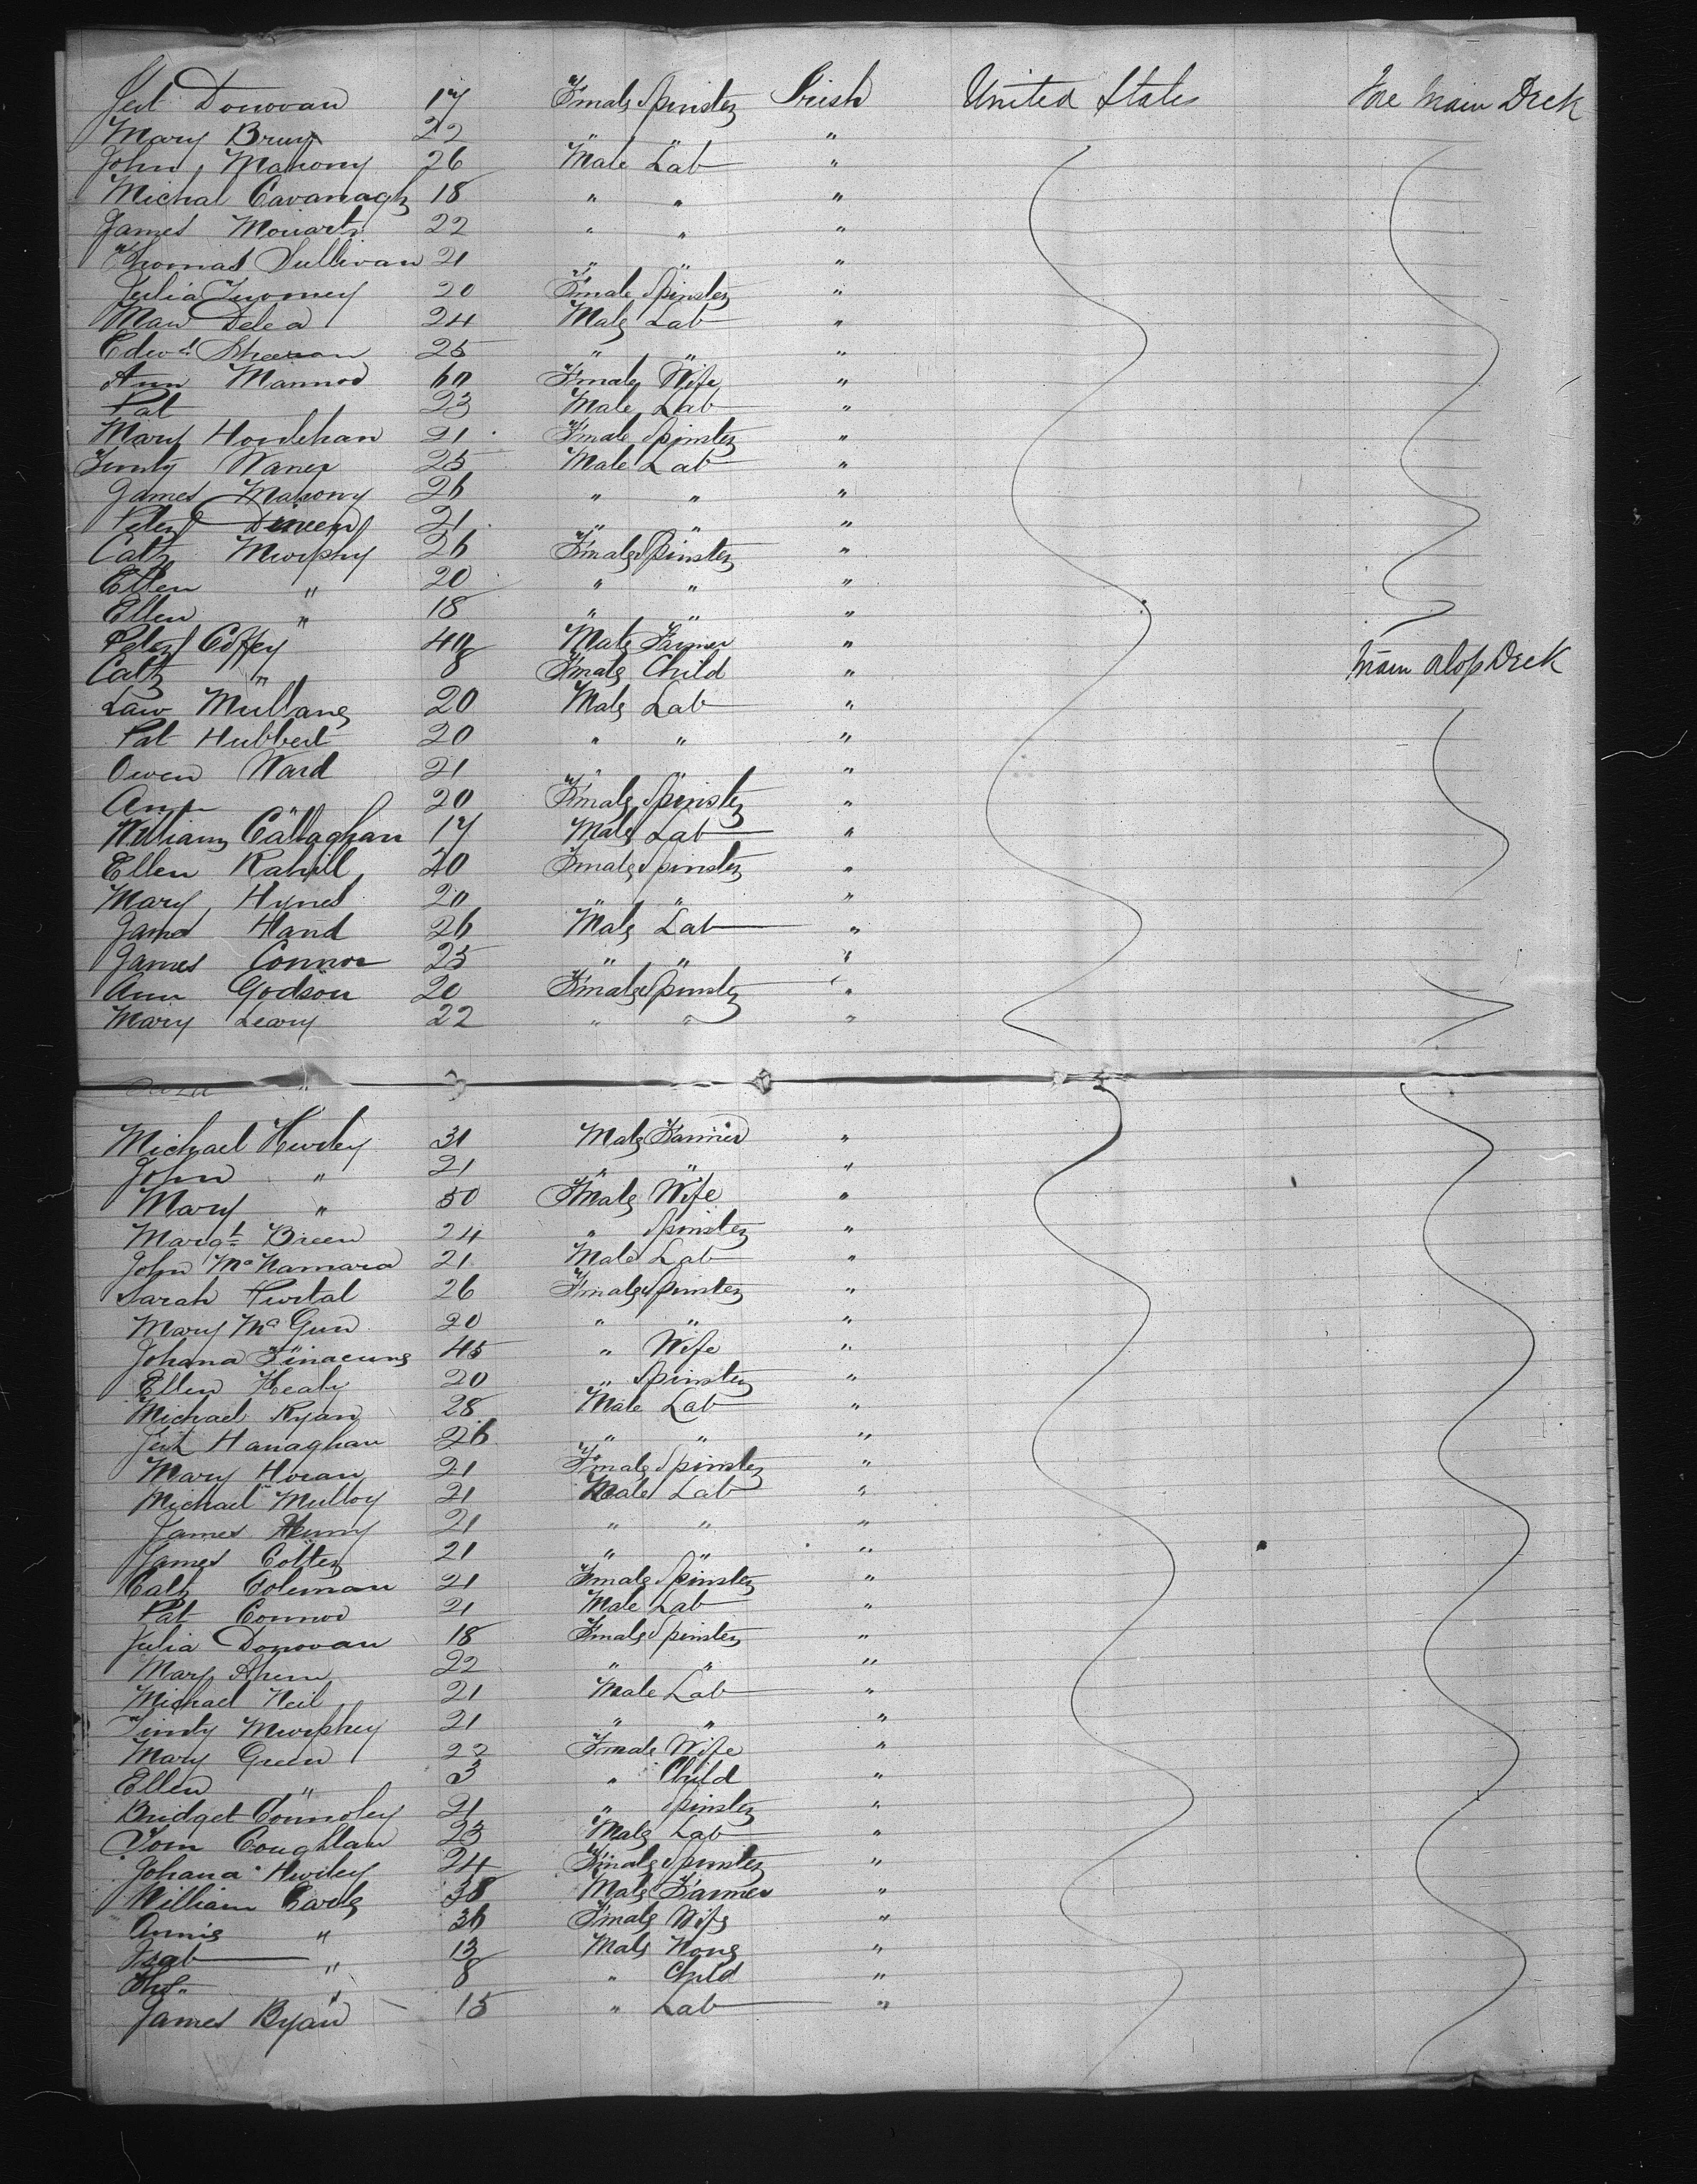 Jeret Donovan 17 Female Spinster Irish United States Fore Main Deck
Mary 22 " " "
John Mahony 26 Male Lab "
Michal Cavanagh 18 " " "
James Moriarty 22 " " "
Thomas Sullivan 21 " " "
Julia Twomey 20 Female Spinster "
Delea 24 Male Lab "
Edwd. Sheeran 25 " " "
Ann Mannod 60 Female Wife "
Pat 23 Male Lab "
Mary Hourihan 21 Female Spinster "
Timty 25 Male Lab "
James Mahony 26 " " "
Peter Dineen 21 " " "
Cath Murphy 26 Female Spinster "
Ellen " 20 " " "
Ellen " 18 " " "
Peter Coffey 40 Male Farmer "
Cath " 8 Female Child " Main Alop Deck
Law Mullane 20 Male Lab "
Pat Hubbert 20 " " "
Owen Ward 21 " " "
Ann " 20 Female Spinster "
William Callaghan 17 Male Lab "
Ellen Rahill 20 Female Spinster "
Mary Hynes 20 " " "
James Hand 26 Male Lab "
James Connor 25 " " "
Ann Godson 20 Female Spinster "
Mary Leary 22 " " "
"
Michael Hurley 31 Male Farmer "
John " 21 " " "
Mary " 50 Female Wife "
Margt Breen 24 " Spinster "
John McNamara 21 Male Lab "
Sarah Purtal 26 Female Spinster "
Mary McGun 20 " " "
Johana Finacune 45 " Wife "
Ellen Healy 20 " Spinster "
Michael Ryan 28 Male Lab "
Hanaghan 26 " " "
Mary Horan 21 Female Spinster "
Michael Mulloy 21 Male Lab "
James 21 " " "
James Cotter 21 " " "
Cath Coleman 21 Female Spinster "
Pat Connor 21 Male Lab "
Julia Donovan 18 Female Spinster "
Mary Ahern 22 " " "
Michael Neil 21 Male Lab "
Timty Murphey 21 " " "
Mary Green 22 Female Wife "
Ellen " 3 " Child "
Bridget Connoley 21 " Spinster "
Tom Coughlan 23 Male Lab "
Johana Hurley 24 Female Spinster "
William Earle 38 Male Farmer "
Annie " 36 Female Wife "
Isab " 13 Male None "
Thos " 8 " Child "
James Ryan 15 " Lab "